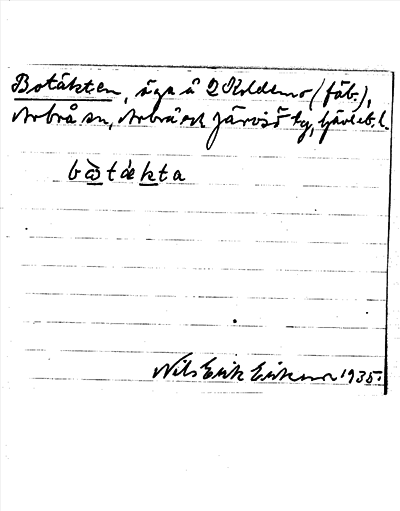 Botäkten, äga å 2 Koldemo (fäb.),
Arbrå sn, Arbrå och Järvsö tg, Gävleb. l.
bωtækta
Nils Erik Eriksson 1935.